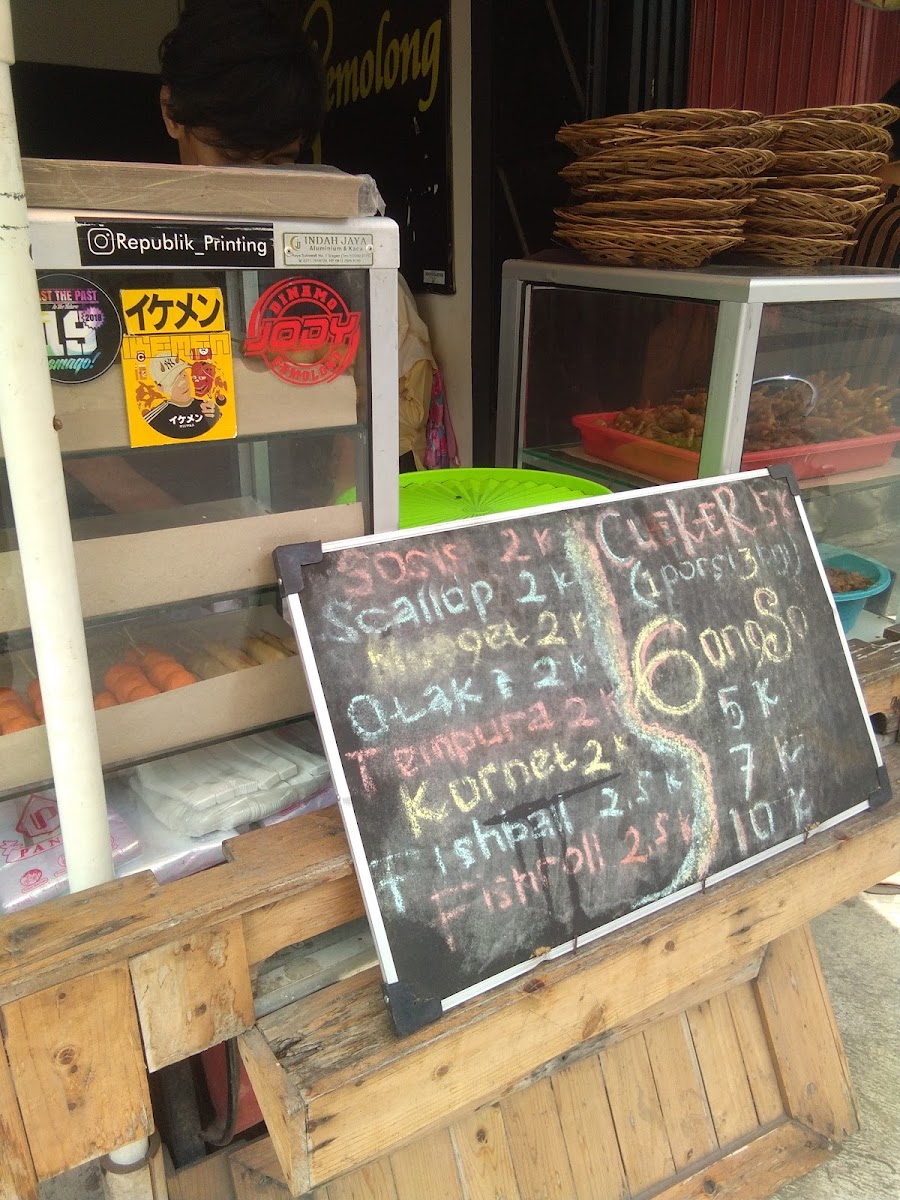 Gemolong
Republik_Printing
INDAH JAYA
Aluminium & Kaca
AST THE PAST
2018
omago!
イケメン
IKEMEN
イケメン
DINAMO
JODY
GEMOLONG
PAN
Sosis 2K
Scallop 2K
Nugget 2K
Otak² 2K
Tempura 2K
Kornet 2K
Fishball 2,5K
Fishroll 2,5K
CUEKER 5K
(1 porsi 3 biji)
GongSo
5K
7K
10K